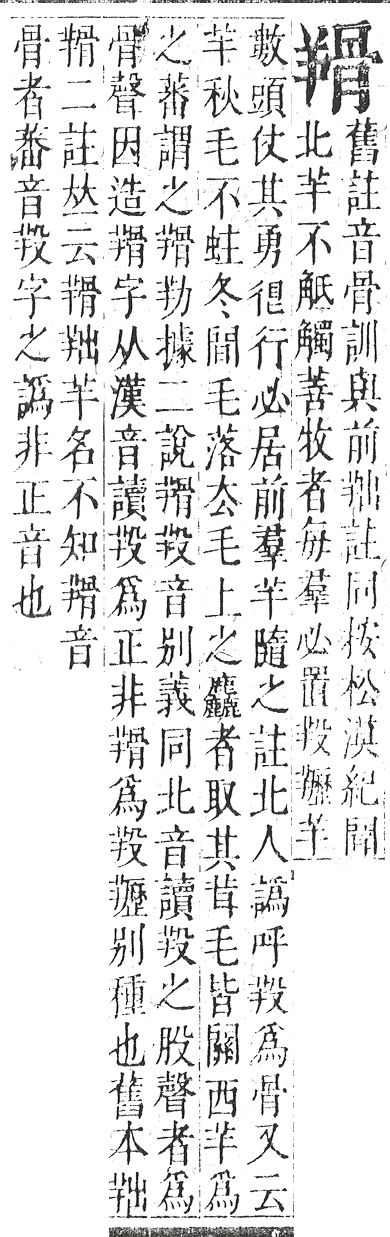 ⿰羊骨
舊註音骨訓與前⿰羊出註同按松漠紀聞
北羊不觝觸善牧者每羣必置羖䍽羊
數頭仗其勇很行必居前羣羊隨之註北人譌呼羖爲骨又云
羊秋毛不蛀冬間毛落去毛上之麤者取其茸毛皆關西羊爲
之蕃謂之⿰羊骨⿰羊力據二說⿰羊骨羖音別義同北音讀羖之股聲者爲
骨聲因造⿰羊骨字从漢音讀羖爲正非⿰羊骨爲羖䍽別種也舊本⿰羊出
⿰羊骨二註𠀤云⿰羊骨⿰羊出羊名不知⿰羊骨音
骨者畨音羖字之譌非正音也